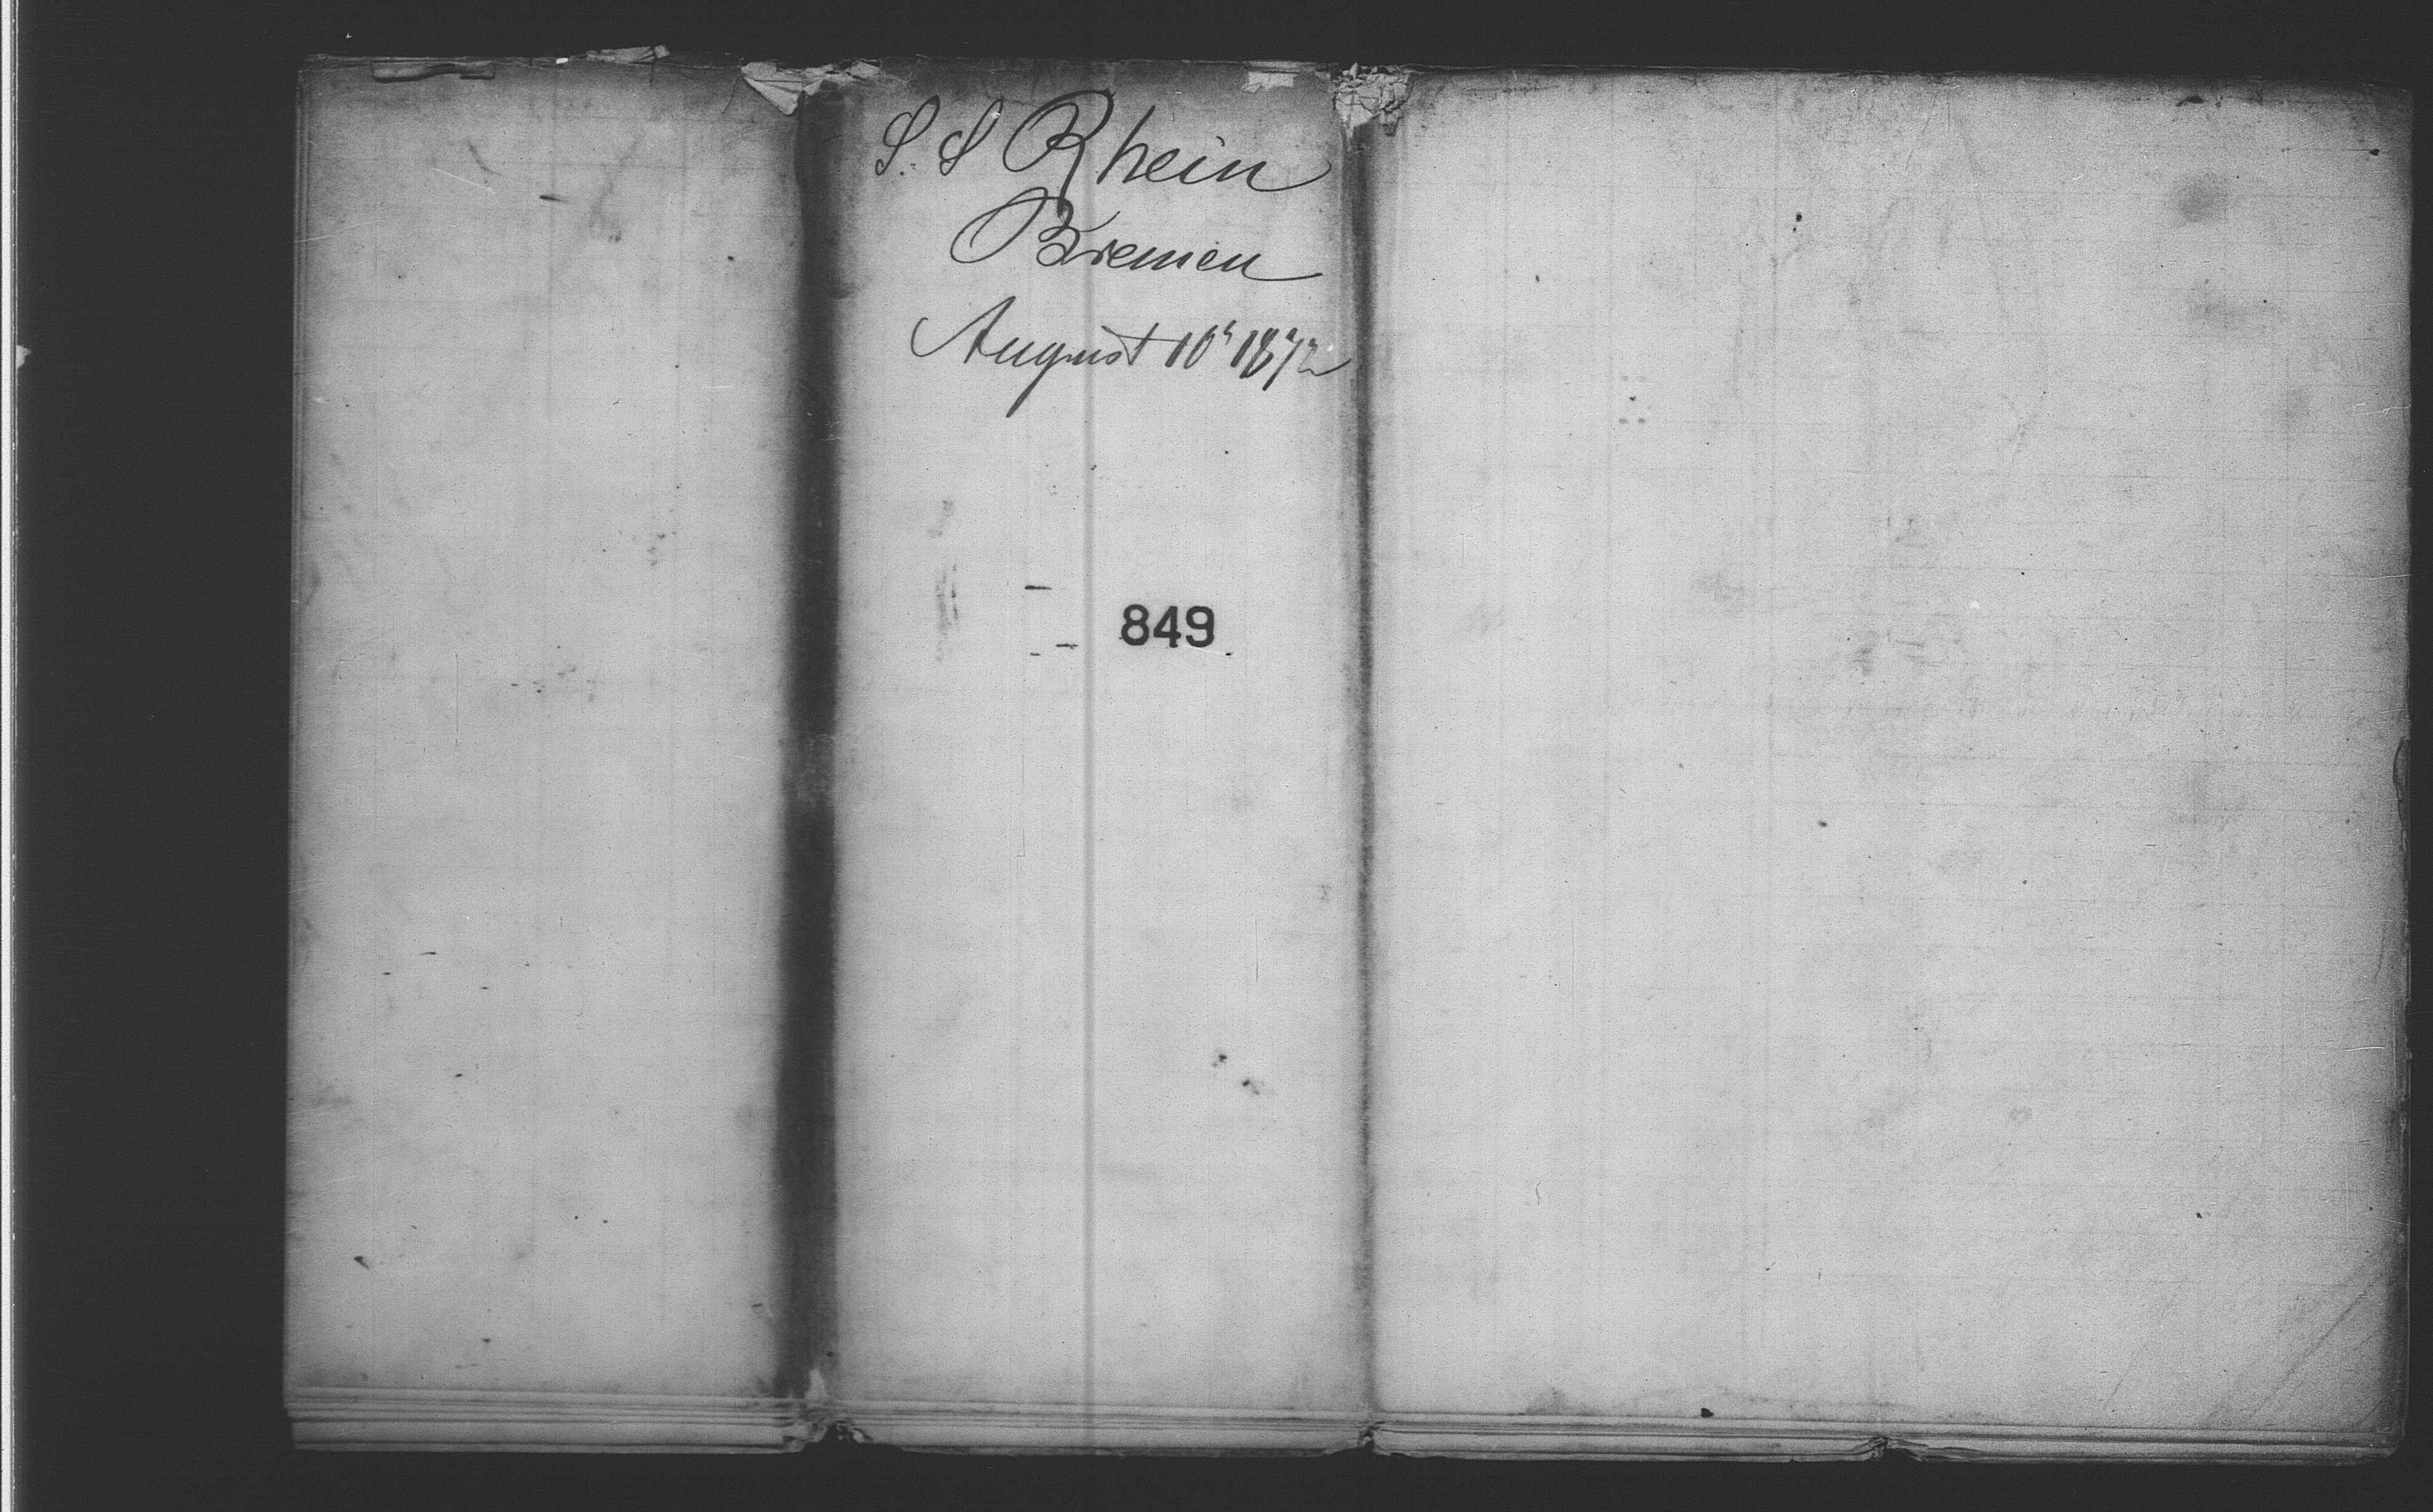 S. S Rhein
Bremen
August 10th 1872
849